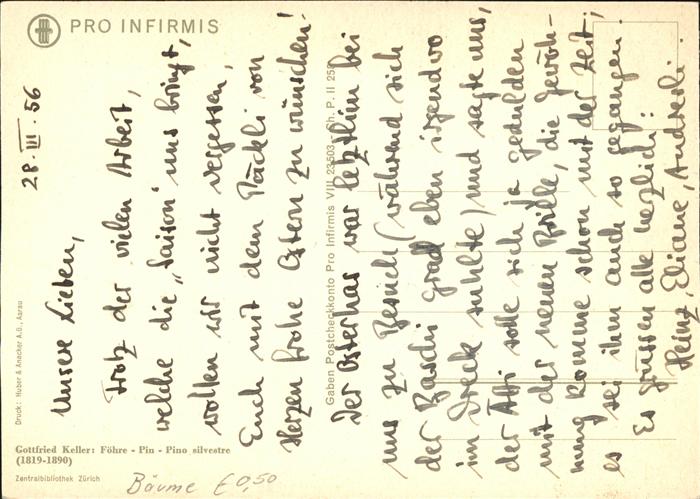 PRO INFIRMIS
28. III. 56
Unsere Lieben,
trotz der vielen Arbeit,
welche die „Saison" uns bringt,
wollen wir nicht vergessen,
Euch mit dem Päckli von
Herzen frohe Ostern zu wünschen!
Der Osterhas war letzthin bei
uns zu Besuch (während sich
der Baschi grad eben irgendwo
im Dreck suhlte) und sagte uns,
der Ätti solle sich ja gedulden
mit der neuen Brille, die gewöh-
nung komme schon mit der Zeit;
es sei ihm auch so gegangen.
Es grüssen alle herzlich:
Heinz, Eliane, Andresli.
Gaben Postcheckkonto Pro Infirmis VIII 23503 - Ch. P. II 255
Druck: Huber & Anacker A.G., Aarau
Gottfried Keller: Föhre - Pin - Pino silvestre
(1819-1890)
Zentralbibliothek Zürich
Bäume € 0,50